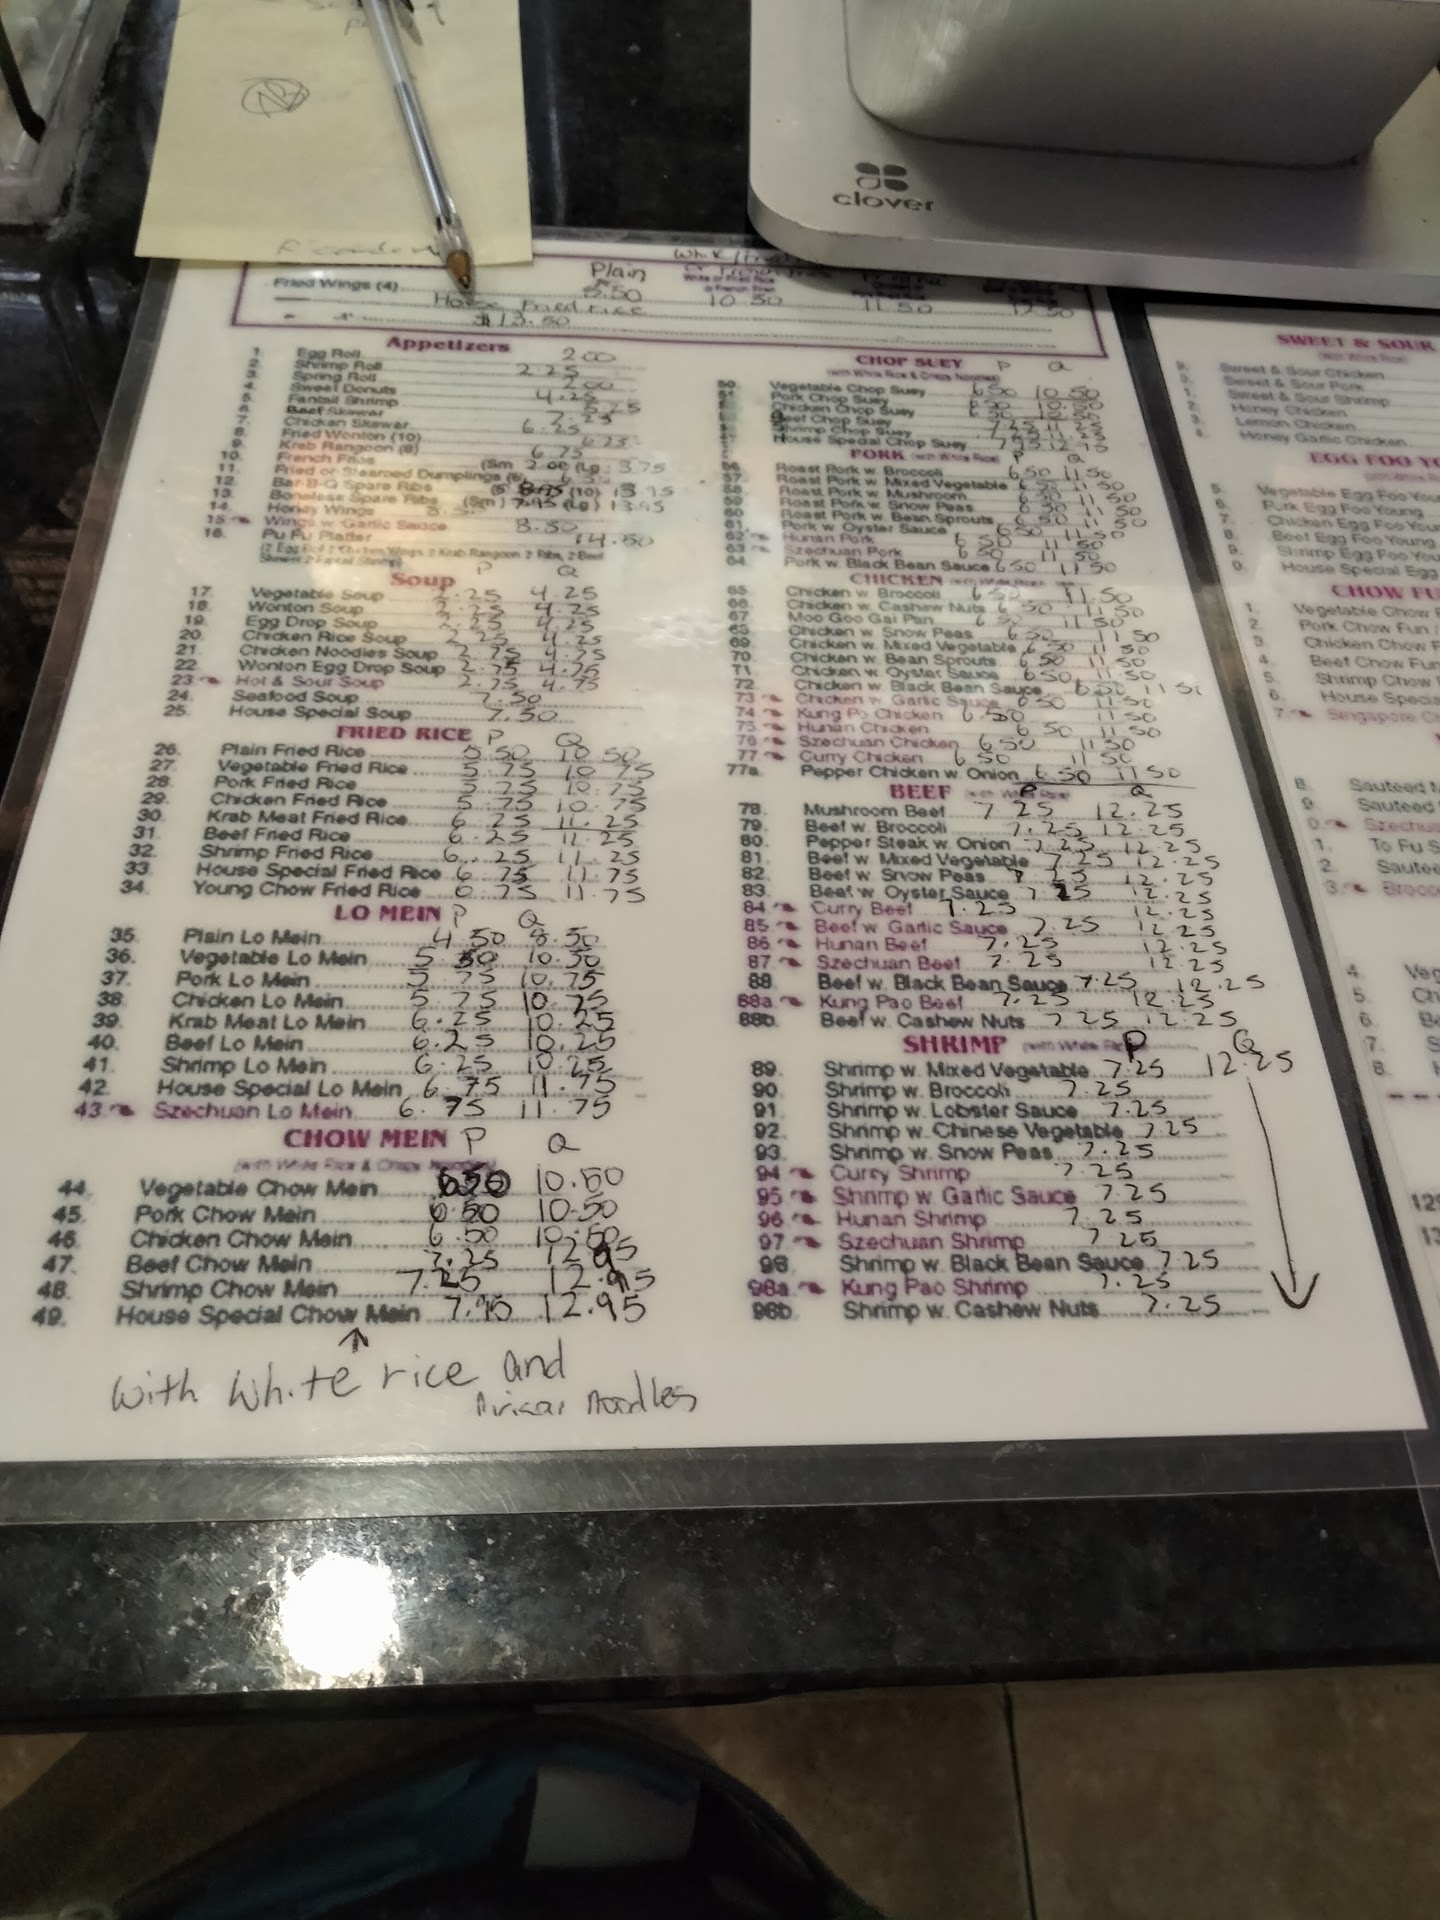 clover
Plain
Fried Wings (4) 10.50 11.50
House Fried rice
$13.50
Appetizers
1. Egg Roll 2.00
2. Shrimp Roll 2.25
3. Spring Roll 2.00
4. Sweet Donuts 4.25
5. Fantail Shrimp
6. Beef Skewer
7. Chicken Skewer 6.25
8. Fried Wonton (10) 6.25
9. Krab Rangoon (8) 6.75
10. French Fries (Sm 2.00 (Lg 3.75
11. Fried or Steamed Dumplings (6)
12. Bar-B-Q Spare Ribs (10) 13.95
13. Boneless Spare Ribs (Sm) 7.95 (Lg) 13.95
14. Honey Wings
15. Wings w. Garlic Sauce 8.50
16. Pu Pu Platter 14.50
Soup
P Q
17. Vegetable Soup 2.25 4.25
18. Wonton Soup 2.25 4.25
19. Egg Drop Soup 2.25 4.25
20. Chicken Rice Soup 2.25 4.25
21. Chicken Noodles Soup 2.75 4.75
22. Wonton Egg Drop Soup 2.75 4.75
23. Hot & Sour Soup 2.75 4.75
24. Seafood Soup 7.50
25. House Special Soup 7.50
FRIED RICE P Q
26. Plain Fried Rice 5.50 10.50
27. Vegetable Fried Rice 5.75 10.75
28. Pork Fried Rice 5.75 10.75
29. Chicken Fried Rice 5.75 10.75
30. Krab Meat Fried Rice 6.25 11.25
31. Beef Fried Rice 6.25 11.25
32. Shrimp Fried Rice 6.25 11.25
33. House Special Fried Rice 6.75 11.75
34. Young Chow Fried Rice 6.75 11.75
LO MEIN P Q
35. Plain Lo Mein 4.50 8.50
36. Vegetable Lo Mein 5.50 10.50
37. Pork Lo Mein 5.75 10.75
38. Chicken Lo Mein 5.75 10.75
39. Krab Meat Lo Mein 6.25 10.25
40. Beef Lo Mein 6.25 10.25
41. Shrimp Lo Mein 6.25 10.25
42. House Special Lo Mein 6.75 11.75
43. Szechuan Lo Mein 6.75 11.75
CHOW MEIN P Q
(with White Rice & Crispy Noodles)
44. Vegetable Chow Mein 6.50 10.50
45. Pork Chow Mein 6.50 10.50
46. Chicken Chow Mein 6.50 10.50
47. Beef Chow Mein 7.25 12.95
48. Shrimp Chow Mein 7.25 12.95
49. House Special Chow Mein 7.95 12.95
with white rice and
noodles
CHOP SUEY P Q
(with White Rice & Crispy Noodles)
50. Vegetable Chop Suey 6.50 10.50
Pork Chop Suey 6.50 10.50
Chicken Chop Suey 6.50 10.50
Beef Chop Suey 7.25 11.25
Shrimp Chop Suey
House Special Chop Suey 7.95 12.95
PORK (with White Rice) P Q
56. Roast Pork w. Broccoli 6.50 11.50
57. Roast Pork w. Mixed Vegetable 6.50 11.50
58. Roast Pork w. Mushroom 6.50 11.50
59. Roast Pork w. Snow Peas 6.50 11.50
60. Roast Pork w. Bean Sprouts 6.50 11.50
61. Pork w. Oyster Sauce 6.50 11.50
62. Hunan Pork 6.50 11.50
63. Szechuan Pork 6.50 11.50
64. Pork w. Black Bean Sauce 6.50 11.50
CHICKEN
65. Chicken w. Broccoli 6.50 11.50
66. Chicken w. Cashew Nuts 6.50 11.50
67. Moo Goo Gai Pan 6.50 11.50
68. Chicken w. Snow Peas 6.50 11.50
69. Chicken w. Mixed Vegetable 6.50 11.50
70. Chicken w. Bean Sprouts 6.50 11.50
71. Chicken w. Oyster Sauce 6.50 11.50
72. Chicken w. Black Bean Sauce 6.50
73. Chicken w. Garlic Sauce 6.50 11.50
74. Kung Po Chicken 6.50 11.50
75. Hunan Chicken 6.50 11.50
76. Szechuan Chicken 6.50 11.50
77. Curry Chicken 6.50 11.50
77a. Pepper Chicken w. Onion 6.50 11.50
BEEF (with White Rice) P Q
78. Mushroom Beef 7.25 12.25
79. Beef w. Broccoli 7.25 12.25
80. Pepper Steak w. Onion 7.25 12.25
81. Beef w. Mixed Vegetable 7.25 12.25
82. Beef w. Snow Peas 7.25 12.25
83. Beef w. Oyster Sauce 7.25 12.25
84. Curry Beef 7.25 12.25
85. Beef w. Garlic Sauce 7.25 12.25
86. Hunan Beef 7.25 12.25
87. Szechuan Beef 7.25 12.25
88. Beef w. Black Bean Sauce 7.25 12.25
88a. Kung Pao Beef 7.25 12.25
88b. Beef w. Cashew Nuts 7.25 12.25
SHRIMP (with White Rice) P Q
89. Shrimp w. Mixed Vegetable 7.25 12.25
90. Shrimp w. Broccoli 7.25
91. Shrimp w. Lobster Sauce 7.25
92. Shrimp w. Chinese Vegetable 7.25
93. Shrimp w. Snow Peas 7.25
94. Curry Shrimp 7.25
95. Shrimp w. Garlic Sauce 7.25
96. Hunan Shrimp 7.25
97. Szechuan Shrimp 7.25
98. Shrimp w. Black Bean Sauce 7.25
98a. Kung Pao Shrimp 7.25
98b. Shrimp w. Cashew Nuts 7.25
SWEET & SOUR
(with White Rice)
Sweet & Sour Chicken
Sweet & Sour Pork
Sweet & Sour Shrimp
Honey Chicken
Lemon Chicken
Honey Garlic Chicken
EGG FOO YO
5. Vegetable Egg Foo Youn
6. Pork Egg Foo Young
7. Chicken Egg Foo Youn
8. Beef Egg Foo Young
9. Shrimp Egg Foo You
0. House Special Egg
CHOW FU
1. Vegetable Chow F
2. Pork Chow Fun
3. Chicken Chow F
4. Beef Chow Fun
5. Shrimp Chow
6. House Specia
7. Singapore C
8. Sauteed M
9. Sauteed
0. Szechua
1. To Fu S
2. Sautee
3. Brocc
4. Veg
5. Ch
6. Be
7. S
8. H
129
13